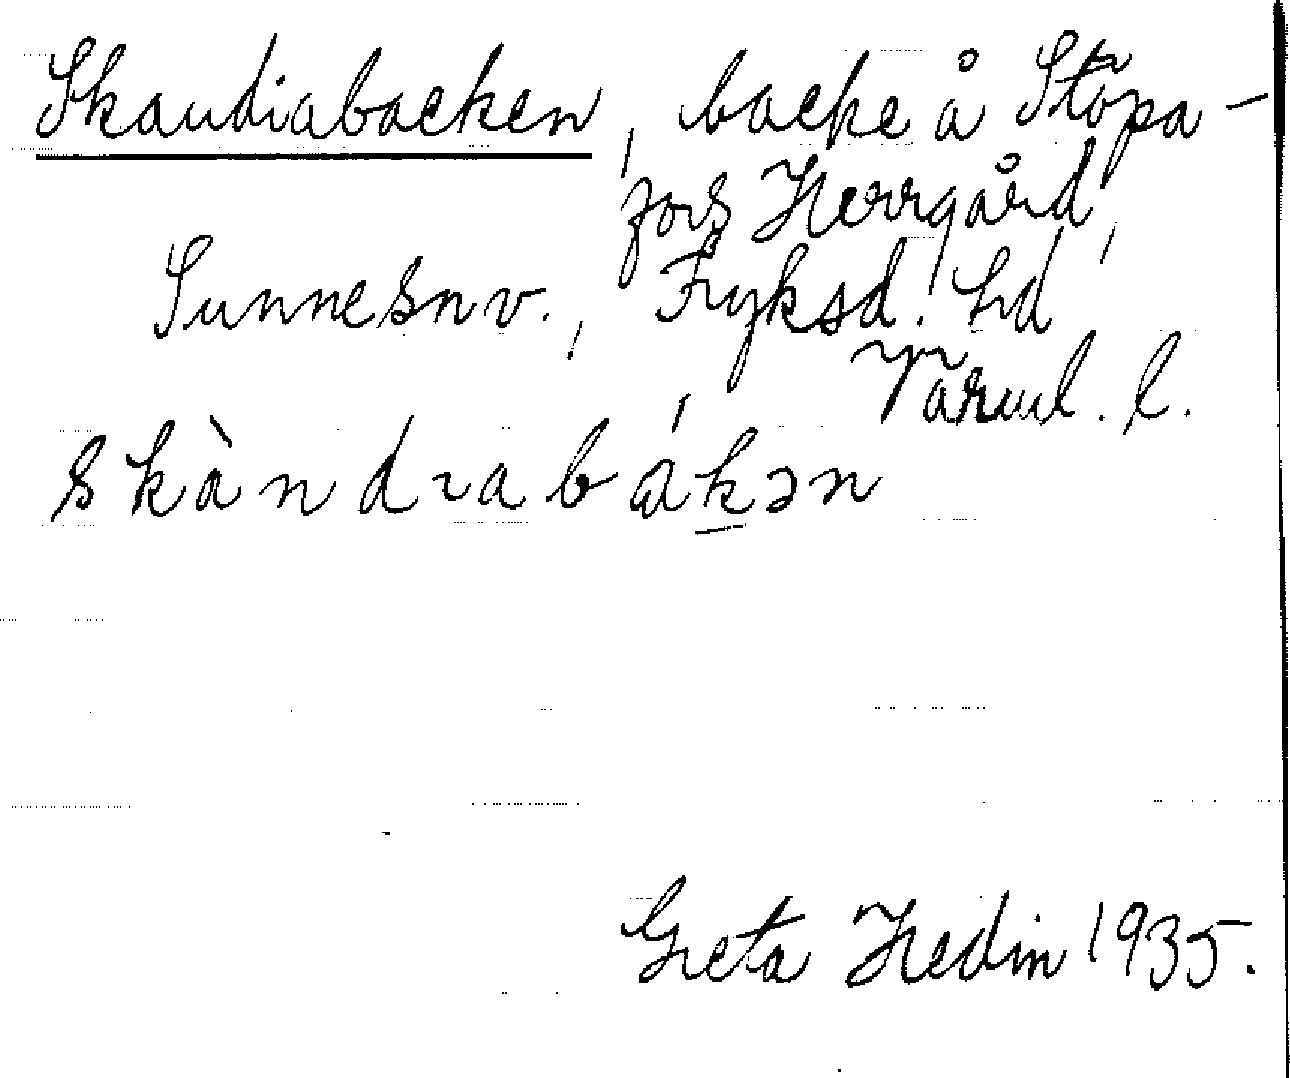 Skandiabacken, backe å Stöpa-
fors Herrgård,
Sunne sn v., Fryksd. hd
Värml. l.
skàndıabákən
Greta Hedin 1935.